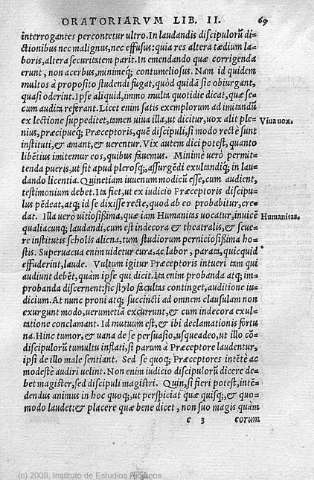 ORATORIARVM LIB. II. 69
interrogantes percontetur ultro. In laudandis discipulorũ di-
ctionibus nec malignus, nec effusus: quia res altera tædium la-
boris, altera securitatem parit. In emendando quæ corrigenda
erunt, non acerbus, minimeq; contumeliosus. Nam id quidem
multos à proposito studendi fugat, quòd quidã sic obiurgant,
quasi oderint. Ipse aliquid, immo multa quotidie dicat, quæ se-
cum auditæ referant. Licet enim satis exemplorum ad imitandũ
ex lectione suppeditet, tamen uiua illa, ut dicitur, uox alit ple-
nius, præcipueq; Præceptoris, quẽ discipuli, si modo rectè sunt
instituti, & amant, & uerentur. Vix autem dici potest, quanto
libẽtius imitemur eos, quibus fauemus. Minimè uerò permit-
tenda pueris, ut fit apud pleros�q;, assurgẽdi exultandiq; in lau-
dando licentia. Quinetiam iuuenum modicũ esse, cum audient,
testimonium debet. Ita fiet, ut ex iudicio Præceptoris discipu-
lus pẽdeat, atq; id se dixisse rectè, quod ab eo probabitur, cre-
dat. Illa uerò uitiosissima, quæ iam Humanitas uocatur, inuicẽ
qualiacunq; laudandi, cum est indecora & theatralis, & seue-
rè institutis scholis aliena, tum studiorum perniciosissima ho-
stis. Superuacua enim uidetur cura, ac labor, parata, quicquid
effuderint, laude. Vultum igitur Præceptoris intueri tam qui
audiunt debẽt, quàm ipse qui dicit. Ita enim probanda atq; im-
probanda discernent: sic stylo facultas continget, auditione iu-
dicium. At nunc proni atq; succincti ad omnem clausulam non
exurgunt modo, uerumetiã excurrunt, & cum indecora exul-
tatione conclamant. Id mutuum est, & ibi declamationis fortu
na. Hinc tumor, & uana de se persuasio, usqueadeo, ut illo cõ-
discipulorũ tumultu inflati, si parum à Præceptore laudentur,
ipsi de illo malè sentiant. Sed se quoq; Præceptores intẽtè ac
modestè audiri uelint. Non enim iudicio discipulorũ dicere de-
bet magister, sed discipuli magistri. Quin, si fieri potest, intẽ-
dendus animus in hoc quoq;, ut perspiciat quæ quisq;, & quo-
modo laudet: & placere quæ bene dicet, non suo magis quàm
c 3 eorum
Viua uox.
Humanitas.
(c) 2009, Instituto de Estudios